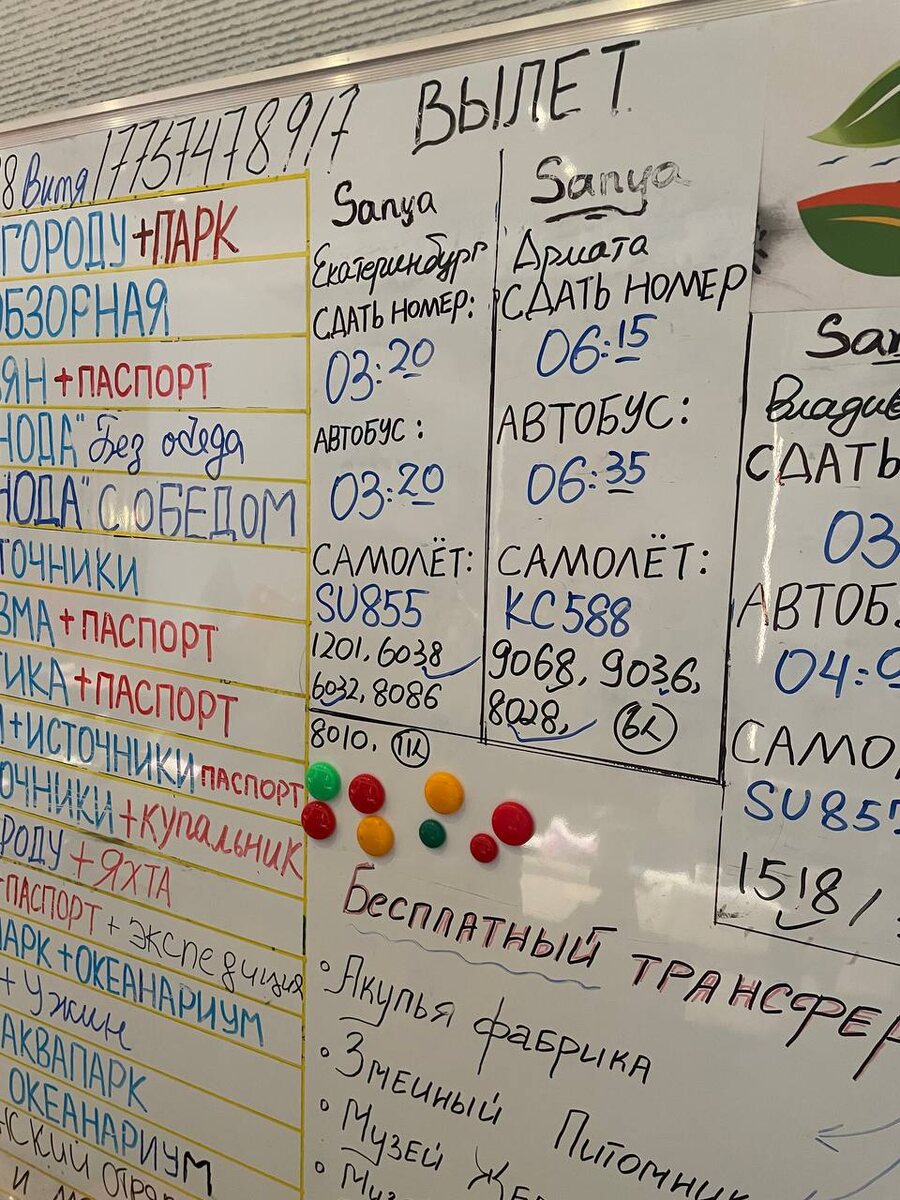 ВЫЛЕТ
8 Витя 17757478917
ГОРОДУ +ПАРК
ОБЗОРНАЯ
ЯН +ПАСПОРТ
НОДА" Без обеда
НОДА" С ОБЕДОМ
ТОЧНИКИ
ЗМА +ПАСПОРТ
ТИКА +ПАСПОРТ
+ИСТОЧНИКИ ПАСПОРТ
ОЧНИКИ +КУПАЛЬНИК
РОДУ + ЯХТА
+ПАСПОРТ + ЭКСПЕДИЦИЯ
ПАРК +ОКЕАНАРИУМ
+ УЖИН
АКВАПАРК
ОКЕАНАРИУМ
Sanya
Екатеринбург
СДАТЬ НОМЕР:
03:20
АВТОБУС:
03:20
САМОЛЁТ:
SU855
1201, 6038
6032, 8086
8010,
Sanya
Армата
СДАТЬ НОМЕР
06:15
АВТОБУС:
06:35
САМОЛЁТ:
KC588
9068, 9036,
8028,
San
Владив
СДАТЬ
03
АВТОБ
04:0
САМО
SU855
1518,
Бесплатный ТРАНСФЕР
° Акулья фабрика
° Змеиный Питомник
° Музей Же